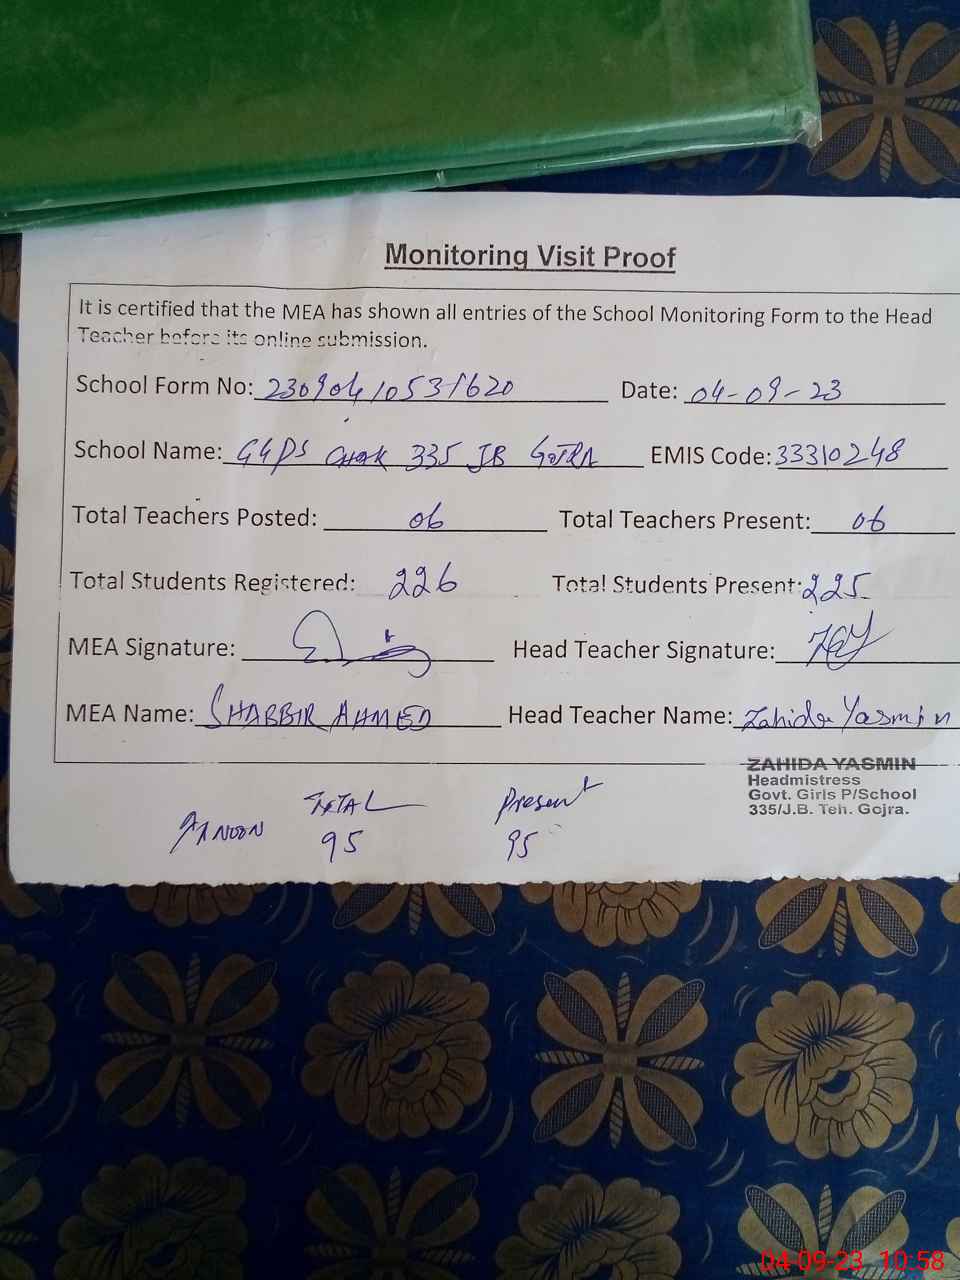 Monitoring Visit Proof
It is certified that the MEA has shown all entries of the School Monitoring Form to the Head
Teacher before its online submission.
School Form No: 23090410531620 Date: 04-09-23
School Name: GGPS Chak 335 JB GOJRA EMIS Code: 33310248
Total Teachers Posted: 06 Total Teachers Present: 06
Total Students Registered: 226 Total Students Present: 225
MEA Signature: Head Teacher Signature:
MEA Name: SHABBIR AHMED Head Teacher Name: Zahida Yasmin
ZAHIDA YASMIN
Headmistress
Govt. Girls P/School
335/J.B. Teh. Gojra.
TOTAL Present
95 95
04-09-23 10:58